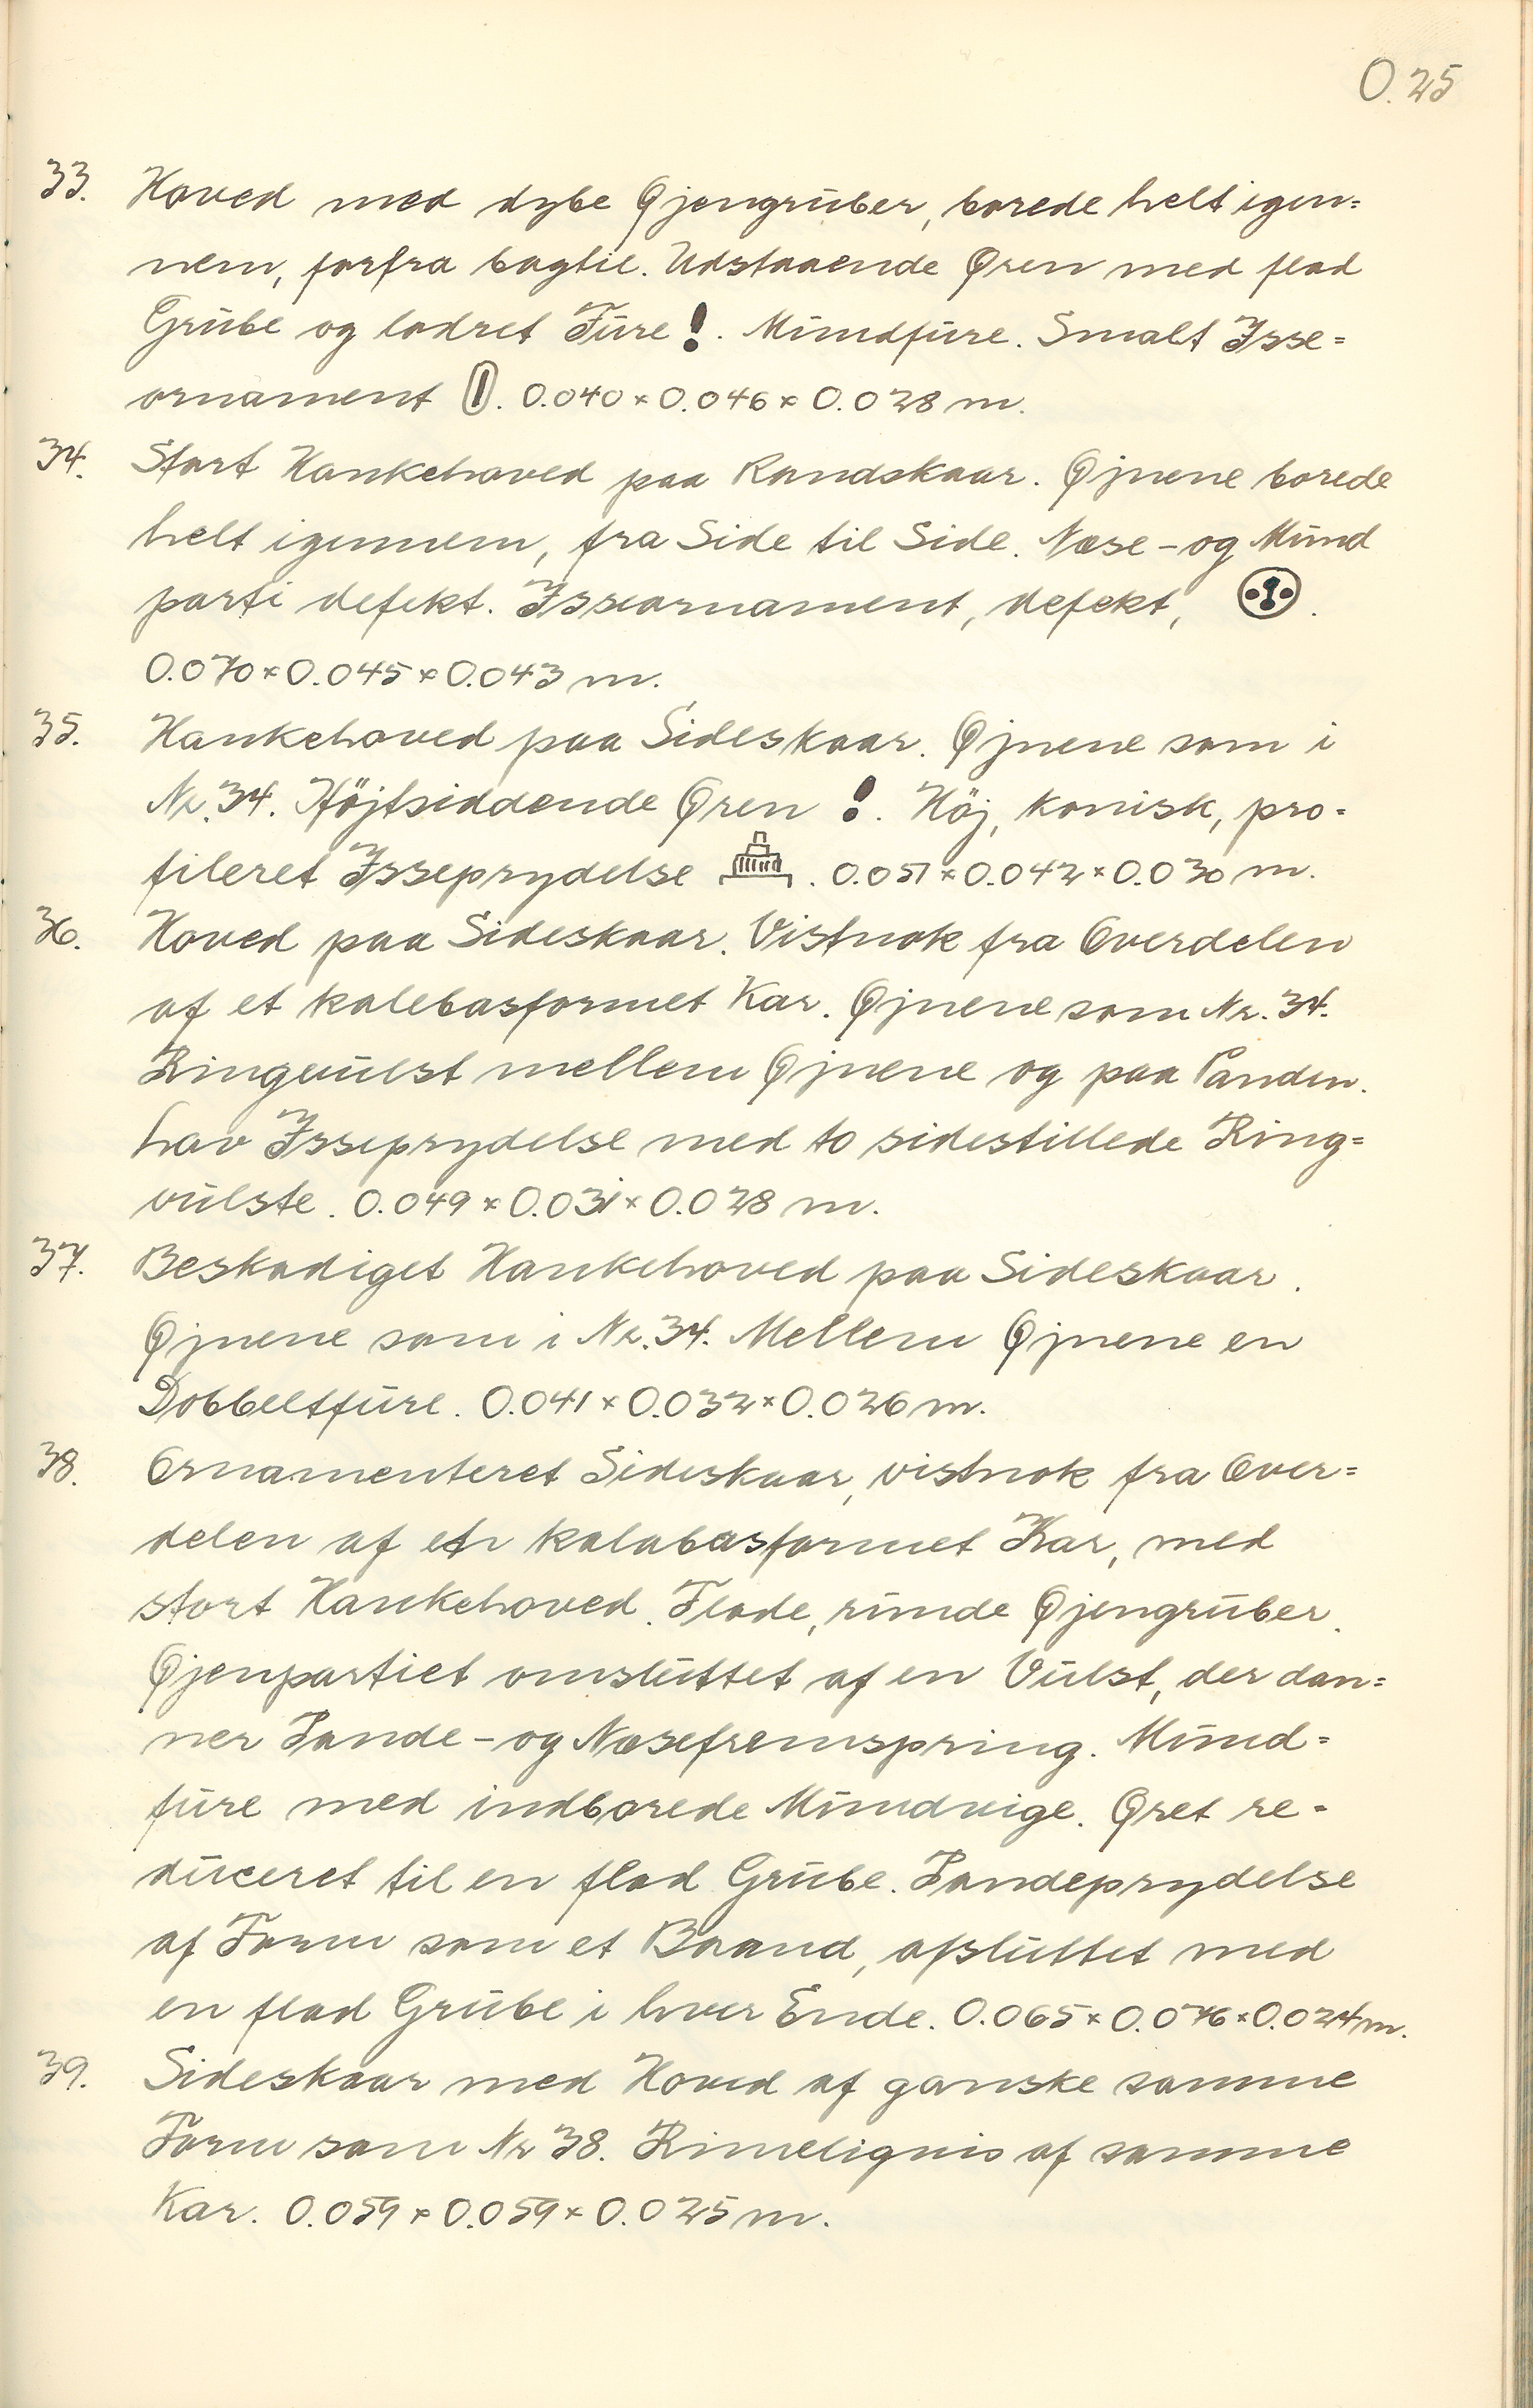 O. 25
33. Hoved med dybe Øjengruber, borede helt igen=
nem, forfra bagtil. Udstaaende Øren med flad
Grube og lodret Fure !. Mundfure. Smalt Isse=
ornament . 0.040 × 0.046 × 0.028 m.
34. Stort Hankehoved paa Randskaar. Øjnene borede
helt igennem, fra Side til Side. Næse- og Mund
parti defekt. Isseornament, defekt, .
0.070 × 0.045 × 0.043 m.
35. Hankehoved paa Sideskaar. Øjnene som i
Nr. 34. Højtsiddende Øren !. Höj, konisk, pro=
fileret Isseprydelse . 0.051 × 0.042 × 0.030 m.
36. Hoved paa Sideskaar. Vistnok fra Overdelen
af et kalebasformet Kar. Øjnene som Nr. 34.
Ringvulst mellem Øjnene og paa Panden.
Lav Isseprydelse med to sidestillede Ring=
vulste. 0.049 × 0.031 × 0.028 m.
37. Beskadiget Hankehoved paa Sideskaar.
Øjnene som i Nr. 34. Mellem Øjnene en
Dobbeltfure. 0.041 × 0.032 × 0.026 m.
38. Ornamenteret Sideskaar, vistnok fra Over=
delen af et kalabasformet Kar, med
stort Hankehoved. Flade, runde Øjengruber.
Øjenpartiet omsluttet af en Vulst, der dan=
ner Pande- og Næsefremspring. Mund=
fure med indborede Mundvige. Øret re=
duceret til en flad Grube. Pandeprydelse
af Form som et Baand, afsluttet med
en flad Grube i hver Ende. 0.065 × 0.076 × 0.024 m.
39. Sideskaar med Hoved af ganske samme
Form som Nr 38. Rimeligvis af samme
Kar. 0.059 × 0.059 × 0.025 m.